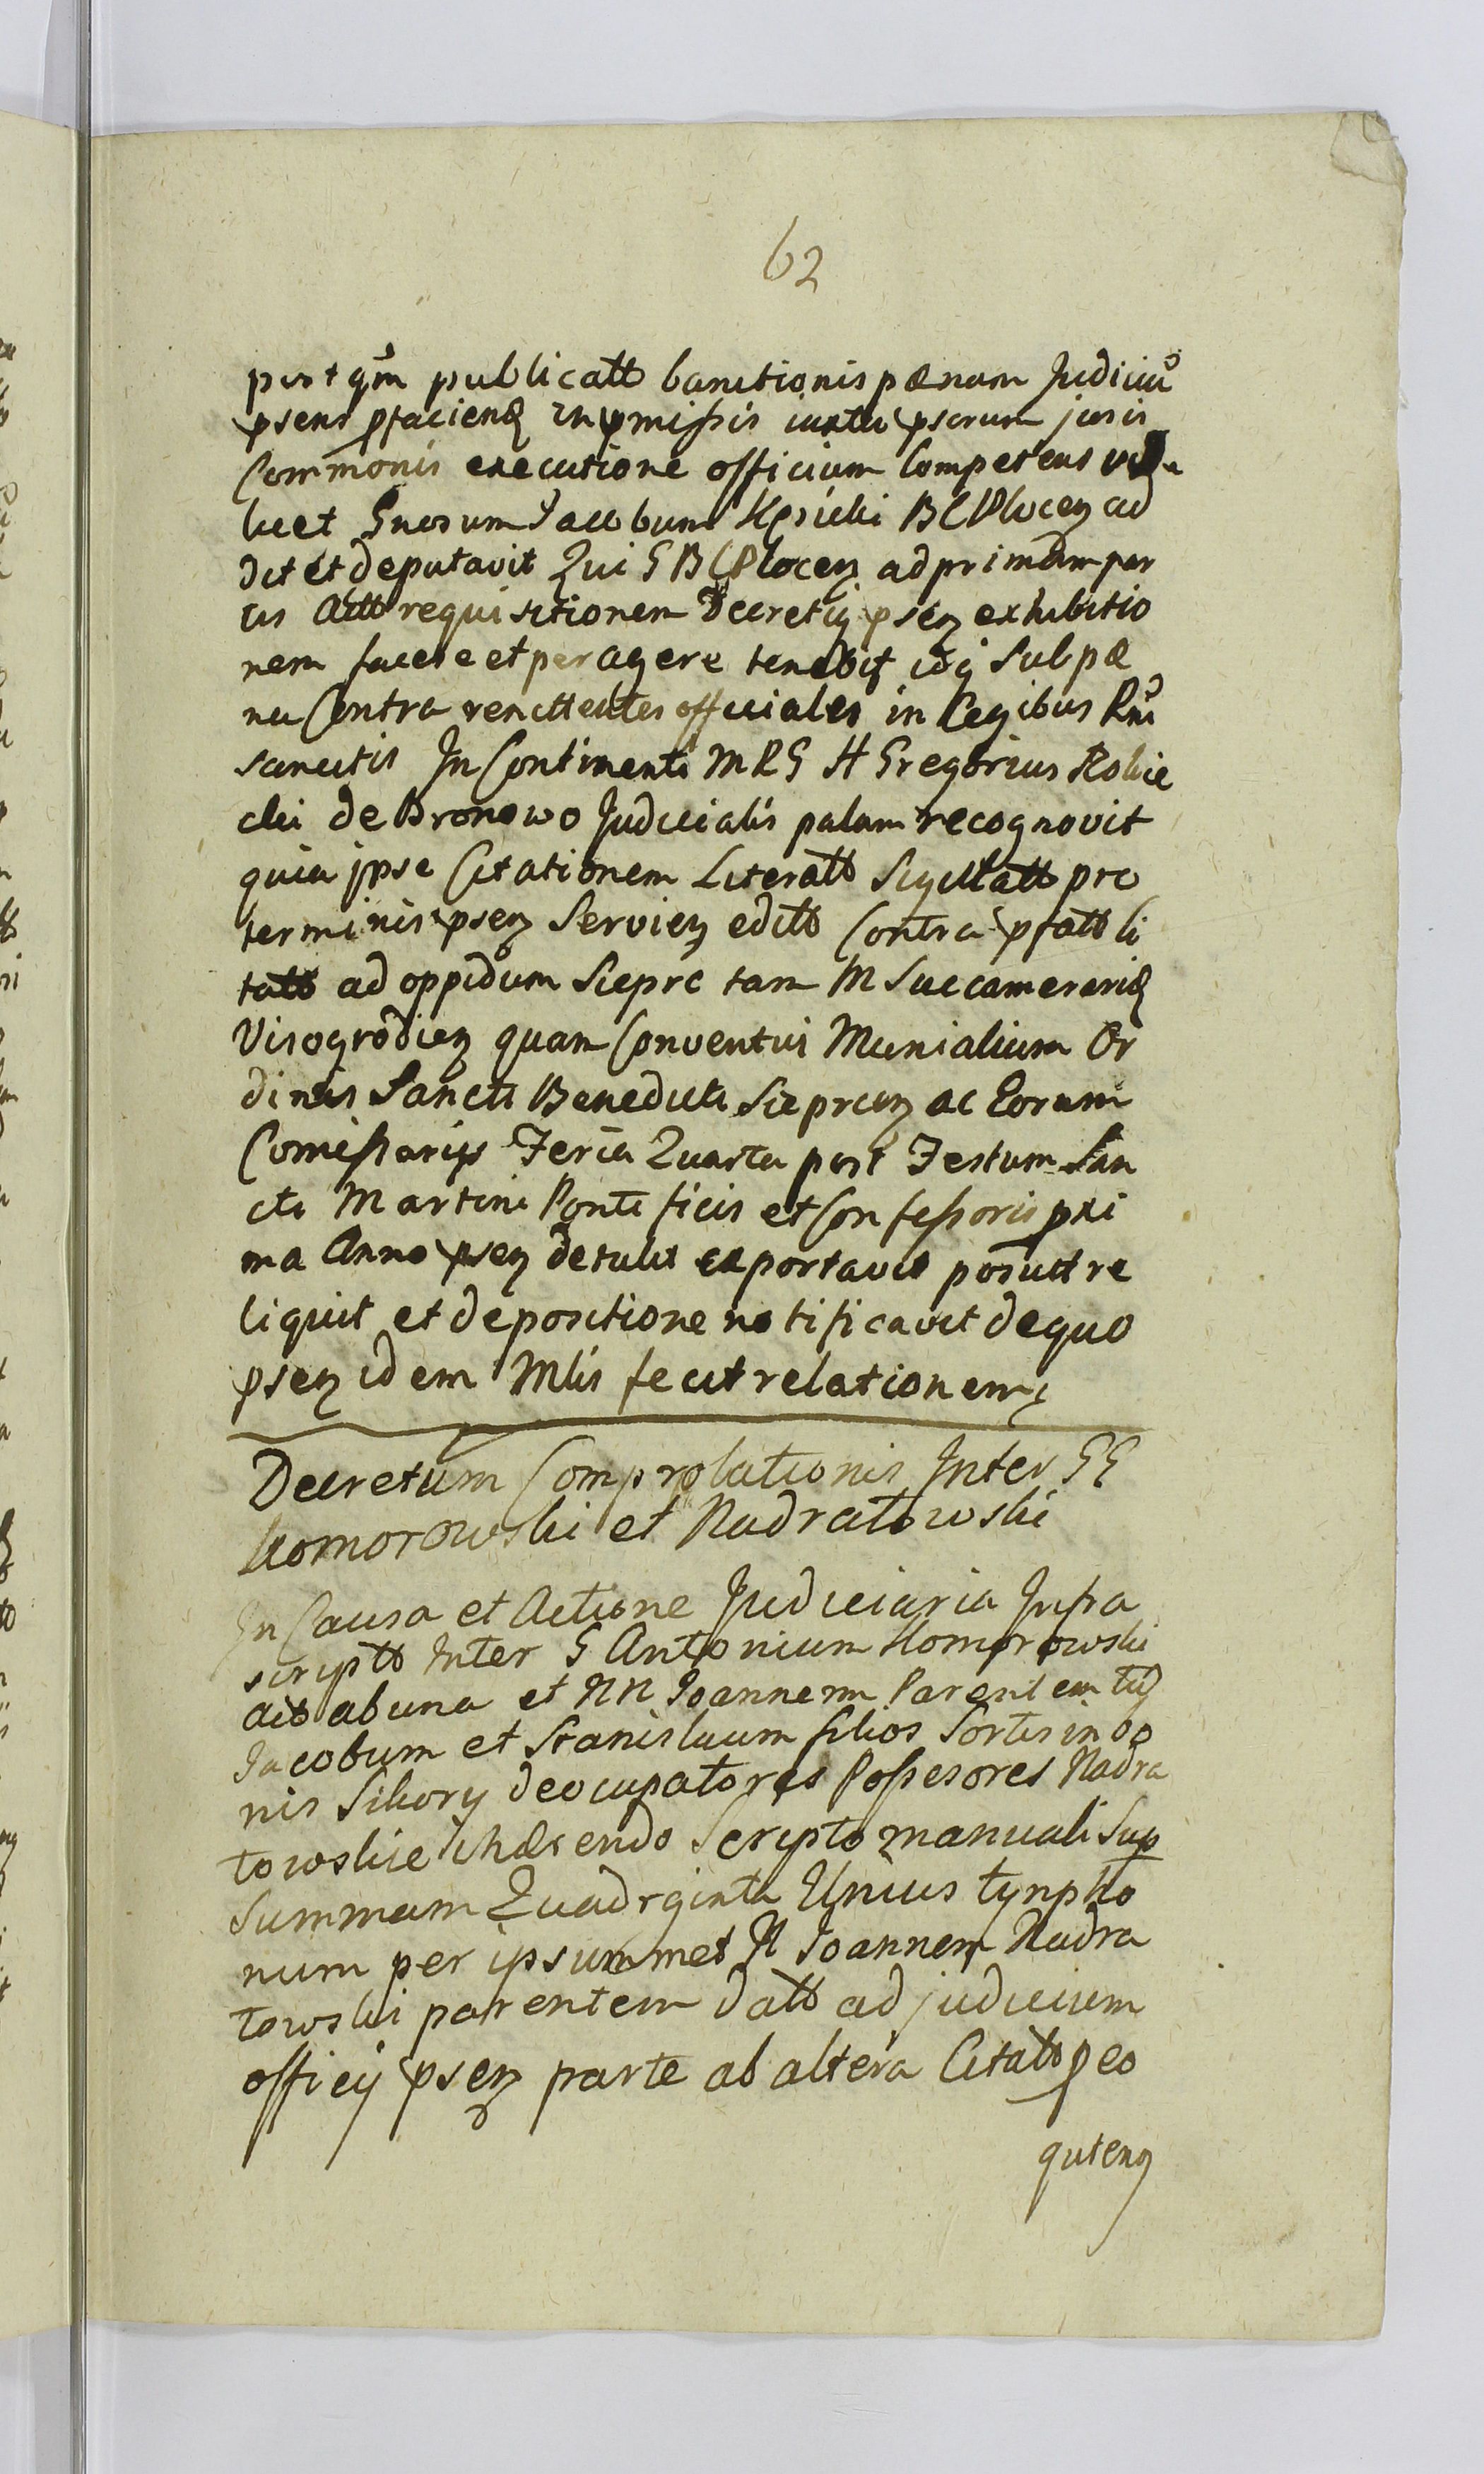 62
post qm publicatt banitionis pænam Judiciu
psens pfaciend in pmissis iuxta pscrum juris
Commonis executione officium Competens vide
licet Gnosum Jacobum BCPlocen ad
dit et deputavit Qui G BCPlocen ad primam par
tis Actt requisitionem Decretiq psen exhibitio
nem facere et peragere tenebit idq Sub pæ
na Contra renittentes officiales in Legibus Rni
sancitis In Continenti MRG H Gregorius Robie
cki de Bronowo Judicialis palam recognovit
quia ipse Citationem Literatt Sigillatt pro
terminis psen Servien editt Contra pfatt Ci
tatt ad oppidum Sieprc tam M Succamerarid
Visogrodien quam Conventus Monialium Or
dinis Sancti Benedicti Sieprcen ac Eorum
Comissarijs Feria Quarta post Festum San
cti Martini Pontificis et Confessoris pxi
ma Anno psen detulit exportavit posuit re
liquit et depositione notificavit de quo
psen idem Mlis fecit relationem
Decretum Comprobationis Inter GG
Komorowski et Nadratowski
In Causa et Actione Judiciaria Infra
scriptt Inter G Antonium Komorowski
actt ab una et NN Joannem Parentem tq
Jacobum et Stanislaum filios Sortis in bo
nis Sikory deocupatores Possesores Nadra
towskie inhærendo Scripto manuali Sup
Summam Quadrginta Unius tynpho
num per ipsummet N Joannem Nadra
towski parentem datt ad judicium
officij psen parte ab altera Citatt peo
quten